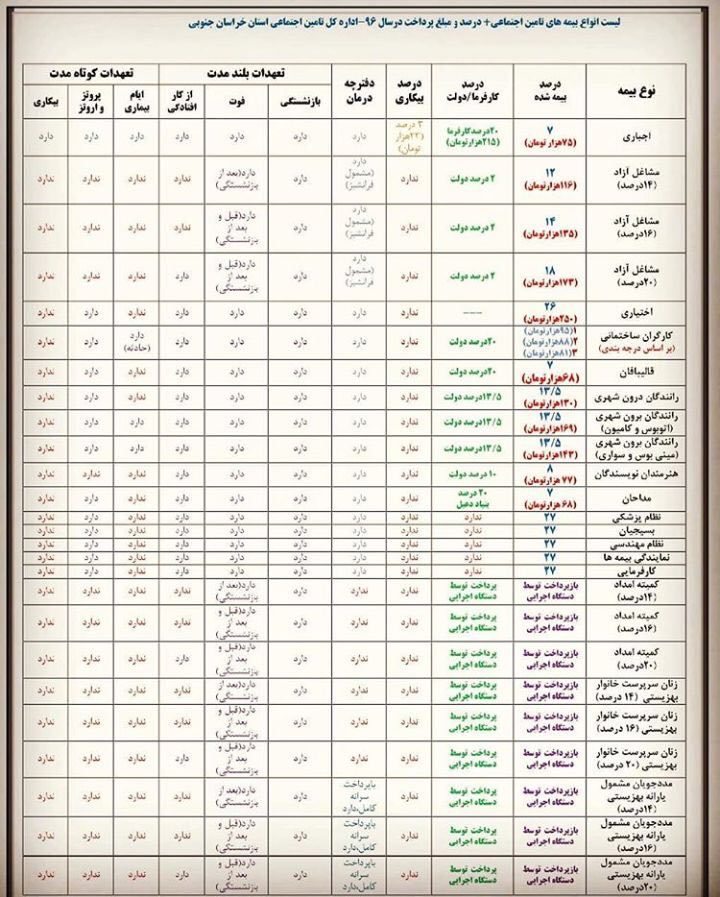 لیست انواع بیمه های تامین اجتماعی+ درصد و مبلغ پرداخت درسال ۹۶-اداره کل تامین اجتماعی استان خراسان جنوبی
نوع بیمه درصد بیمه شده درصد کارفرما/دولت درصد بیکاری دفترچه درمان تعهدات بلند مدت تعهدات کوتاه مدت
بازنشستگی فوت از کار افتادگی ایام بیماری پروتز و اروتز بیکاری
اجباری ۷ (۷۵هزارتومان) ۲۰درصدکارفرما (۲۱۵هزارتومان) ۳ درصد (۳۲هزار تومان) دارد دارد دارد دارد دارد دارد دارد
مشاغل آزاد (۱۴درصد) ۱۲ (۱۱۶هزارتومان) ۲ درصد دولت ندارد دارد (مشمول فرانشیز) دارد دارد(بعد از بازنشستگی) ندارد ندارد ندارد ندارد
مشاغل آزاد (۱۶درصد) ۱۴ (۱۳۵هزارتومان) ۲ درصد دولت ندارد دارد (مشمول فرانشیز) دارد دارد(قبل و بعد از بازنشستگی) ندارد ندارد دارد ندارد
مشاغل آزاد (۲۰درصد) ۱۸ (۱۷۳هزارتومان) ۲ درصد دولت ندارد دارد (مشمول فرانشیز) دارد دارد(قبل و بعد از بازنشستگی) دارد ندارد دارد ندارد
اختیاری ۲۶ (۲۵۰هزارتومان) --- ندارد دارد دارد دارد دارد ندارد دارد ندارد
کارگران ساختمانی (بر اساس درجه بندی) ۱(۹۵هزارتومان) ۲(۸۸هزارتومان) ۳(۸۱هزارتومان) ۲۰درصد دولت ندارد دارد دارد دارد دارد دارد (حادثه) دارد ندارد
قالیبافان ۷ (۶۸هزارتومان) ۲۰درصد دولت ندارد دارد دارد دارد دارد ندارد دارد ندارد
رانندگان درون شهری ۱۳/۵ (۱۳۰هزارتومان) ۱۳/۵درصد دولت ندارد دارد دارد دارد دارد دارد دارد ندارد
رانندگان برون شهری (اتوبوس و کامیون) ۱۳/۵ (۱۶۹هزارتومان) ۱۳/۵درصد دولت ندارد دارد دارد دارد دارد دارد دارد ندارد
رانندگان برون شهری (مینی بوس و سواری) ۱۳/۵ (۱۴۳هزارتومان) ۱۳/۵درصد دولت ندارد دارد دارد دارد دارد دارد دارد ندارد
هنرمندان نویسندگان ۸ (۷۷ هزارتومان) ۱۰ درصد دولت ندارد دارد دارد دارد دارد ندارد ندارد ندارد
مداحان ۷ (۶۸ هزارتومان) ۲۰ درصد بنیاد دعبل ندارد دارد دارد دارد دارد ندارد دارد ندارد
نظام پزشکی ۲۷ ندارد ندارد دارد دارد دارد دارد ندارد دارد ندارد
بسیجیان ۲۷ ندارد ندارد دارد دارد دارد دارد ندارد دارد ندارد
نظام مهندسی ۲۷ ندارد ندارد دارد دارد دارد دارد ندارد دارد ندارد
نمایندگی بیمه ها ۲۷ ندارد ندارد دارد دارد دارد دارد ندارد دارد ندارد
کارفرمایی ۲۷ ندارد ندارد دارد دارد دارد دارد ندارد دارد ندارد
کمیته امداد (۱۴درصد) بازپرداخت توسط دستگاه اجرایی پرداخت توسط دستگاه اجرایی ندارد ندارد دارد دارد(بعد از بازنشستگی) ندارد ندارد ندارد ندارد
کمیته امداد (۱۶درصد) بازپرداخت توسط دستگاه اجرایی پرداخت توسط دستگاه اجرایی ندارد ندارد دارد دارد(قبل و بعد از بازنشستگی) ندارد ندارد ندارد ندارد
کمیته امداد (۲۰درصد) بازپرداخت توسط دستگاه اجرایی پرداخت توسط دستگاه اجرایی ندارد ندارد دارد دارد(قبل و بعد از بازنشستگی) دارد ندارد ندارد ندارد
زنان سرپرست خانوار بهزیستی (۱۴ درصد) بازپرداخت توسط دستگاه اجرایی پرداخت توسط دستگاه اجرایی ندارد ندارد دارد دارد(بعد از بازنشستگی) ندارد ندارد ندارد ندارد
زنان سرپرست خانوار بهزیستی (۱۶ درصد) بازپرداخت توسط دستگاه اجرایی پرداخت توسط دستگاه اجرایی ندارد ندارد دارد دارد(قبل و بعد از بازنشستگی) ندارد ندارد ندارد ندارد
زنان سرپرست خانوار بهزیستی (۲۰ درصد) بازپرداخت توسط دستگاه اجرایی پرداخت توسط دستگاه اجرایی ندارد ندارد دارد دارد(قبل و بعد از بازنشستگی) دارد ندارد ندارد ندارد
مددجویان مشمول یارانه بهزیستی (۱۴درصد) بازپرداخت توسط دستگاه اجرایی پرداخت توسط دستگاه اجرایی ندارد باپرداخت سرانه کامل،دارد دارد دارد(بعد از بازنشستگی) ندارد ندارد ندارد ندارد
مددجویان مشمول یارانه بهزیستی (۱۶درصد) بازپرداخت توسط دستگاه اجرایی پرداخت توسط دستگاه اجرایی ندارد باپرداخت سرانه کامل،دارد دارد دارد(قبل و بعد از بازنشستگی) ندارد ندارد ندارد ندارد
مددجویان مشمول یارانه بهزیستی (۲۰درصد) بازپرداخت توسط دستگاه اجرایی پرداخت توسط دستگاه اجرایی ندارد باپرداخت سرانه کامل،دارد دارد دارد(قبل و بعد از بازنشستگی) دارد ندارد ندارد ندارد